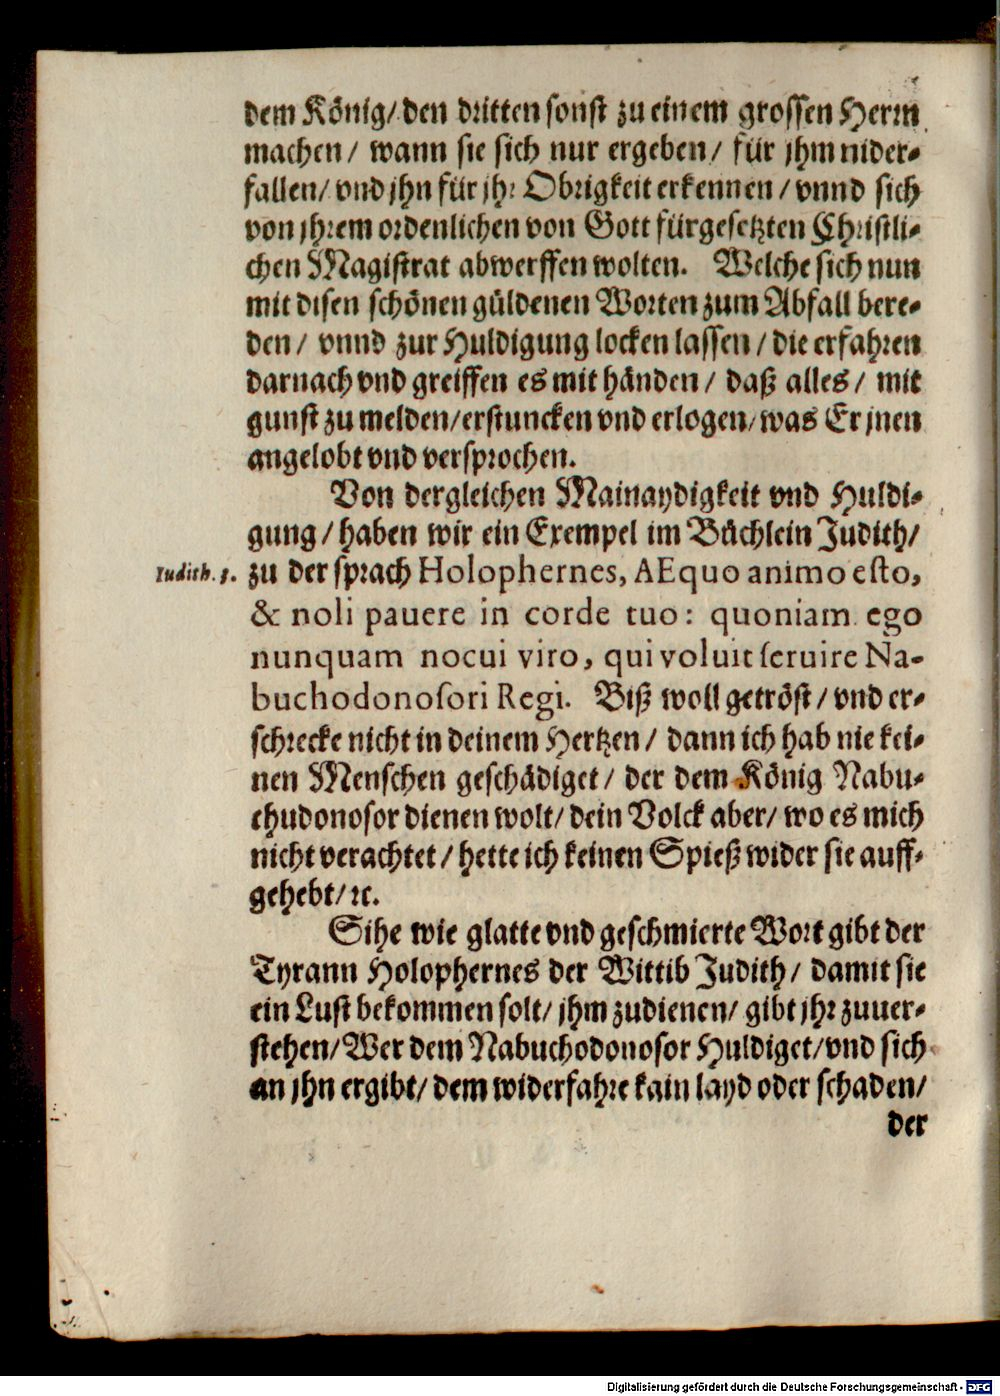 dem König/ den dritten sonst zu einem grossen Herrn
machen/ wann sie sich nur ergeben/ für jhm nider-
fallen/ vnd jhn für jhr Obrigkeit erkennen/ vnnd sich
von jhrem ordenlichen von Gott fürgesetzten Christli-
chen Magistrat abwerffen wolten. Welche sich nun
mit disen schönen güldenen Worten zum Abfall bere-
den/ vnnd zur Huldigung locken lassen/ die erfahren
darnach vnd greiffen es mit händen/ daß alles/ mit
gunst zu melden/ erstuncken vnd erlogen/ was Er jnen
angelobt vnd versprochen.
Von dergleichen Mainaydigkeit vnd Huldi-
gung/ haben wir ein Exempel im Büchlein Judith/
Iudith.
zu der sprach Holophernes, AEquo animo esto,
& noli pauere in corde tuo: quoniam ego
nunquam nocui viro, qui voluit seruire Na-
buchodonosori Regi. Biß woll getröst/ vnd er-
schrecke nicht in deinem Hertzen/ dann ich hab nie kei-
nen Menschen geschädiget/ der dem König Nabu-
chudonosor dienen wolt/ dein Volck aber/ wo es mich
nicht verachtet/ hette ich keinen Spieß wider sie auff-
gehebt/ ꝛc.
Sihe wie glatte vnd geschmierte Wort gibt der
Tyrann Holophernes der Wittib Judith/ damit sie
ein Lust bekommen solt/ jhm zudienen/ gibt jhr zuuer-
stehen/ Wer dem Nabuchodonosor Huldiget/ vnd sich
an jhn ergibt/ dem widerfahre kain layd oder schaden/
der
Digitalisierung gefördert durch die Deutsche Forschungsgemeinschaft - DFG